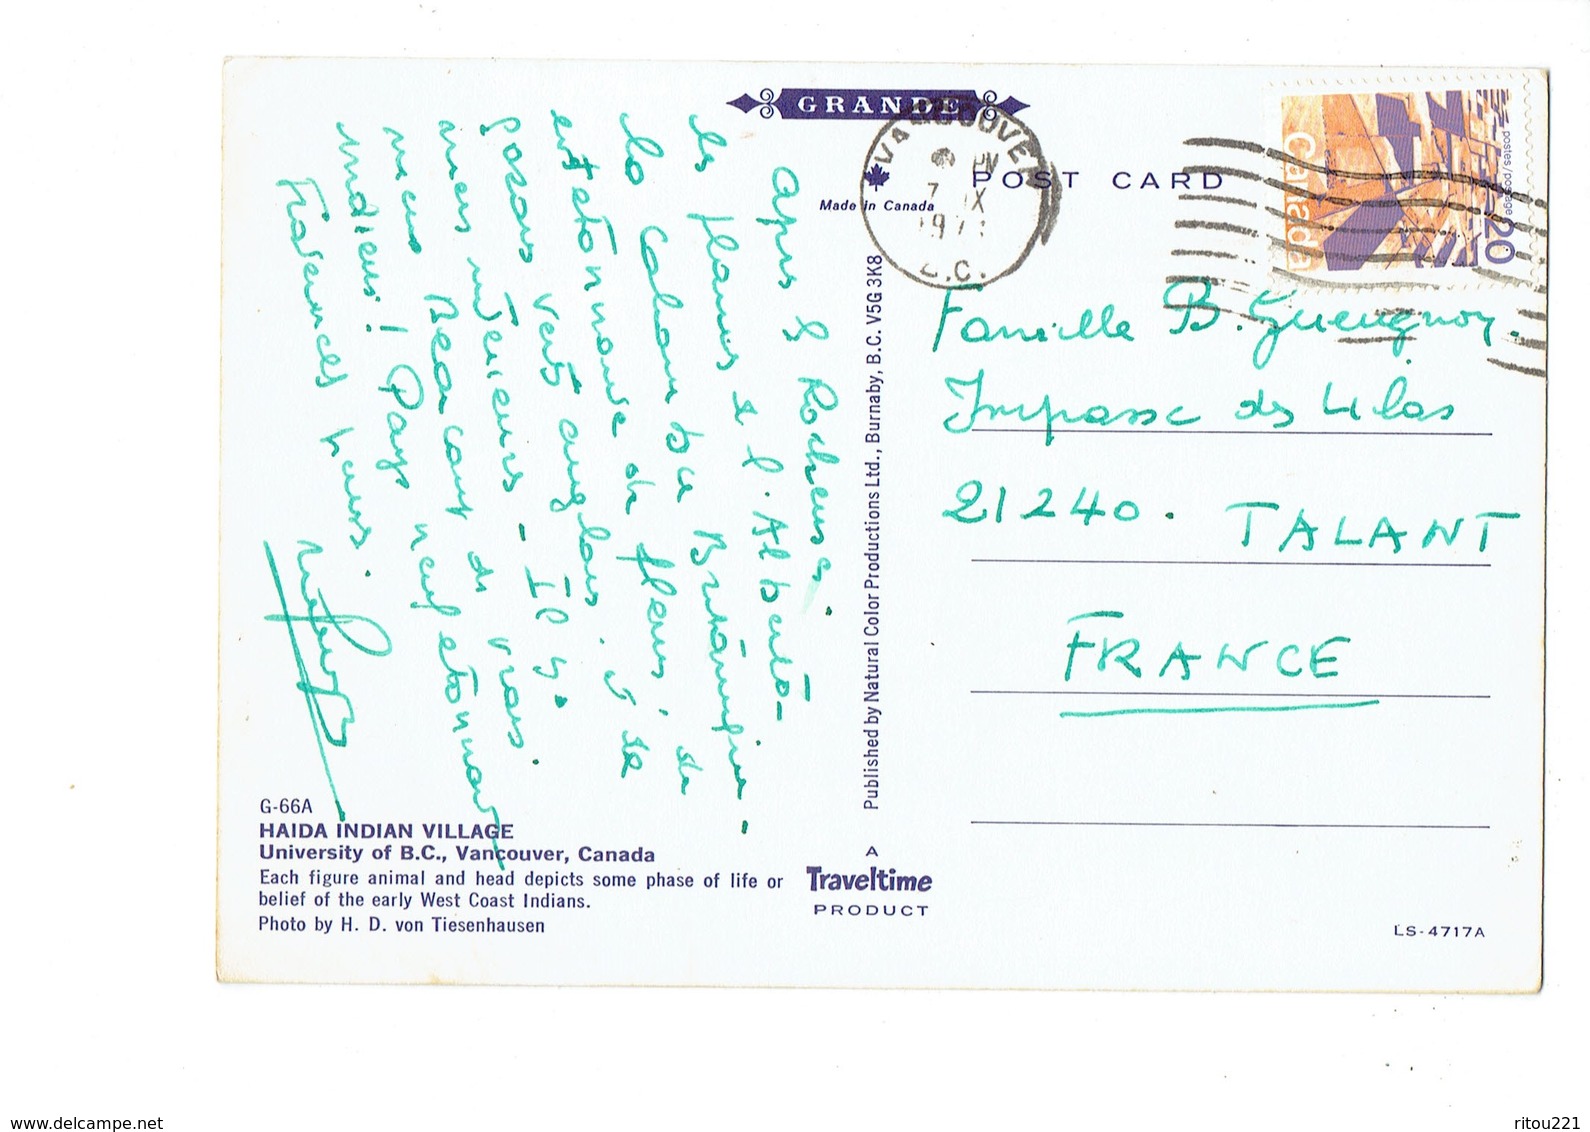 GRANDE
VANCOUVER
7 IX
B.C.
POST CARD
Made in Canada
Canada
postes/postage
20
Après les Rocheuses.
les plaines de l'Alberta-
la Colombie Britannique.
est étonnante de fleurs, de
gazons verts anglais. et de
mers intérieures - Il y a
Beaucoup de vrais
indiens! Pays neuf étonnant
Fraternelles pensées.
Famille B. Gueugnon.
Impasse des Lilas
21240. TALANT
FRANCE
Published by Natural Color Productions Ltd., Burnaby, B.C. V5G 3K8
G-66A
HAIDA INDIAN VILLAGE
University of B.C., Vancouver, Canada
Each figure animal and head depicts some phase of life or
belief of the early West Coast Indians.
Photo by H. D. von Tiesenhausen
A
Traveltime
PRODUCT
LS-4717A
www.delcampe.net
ritou221